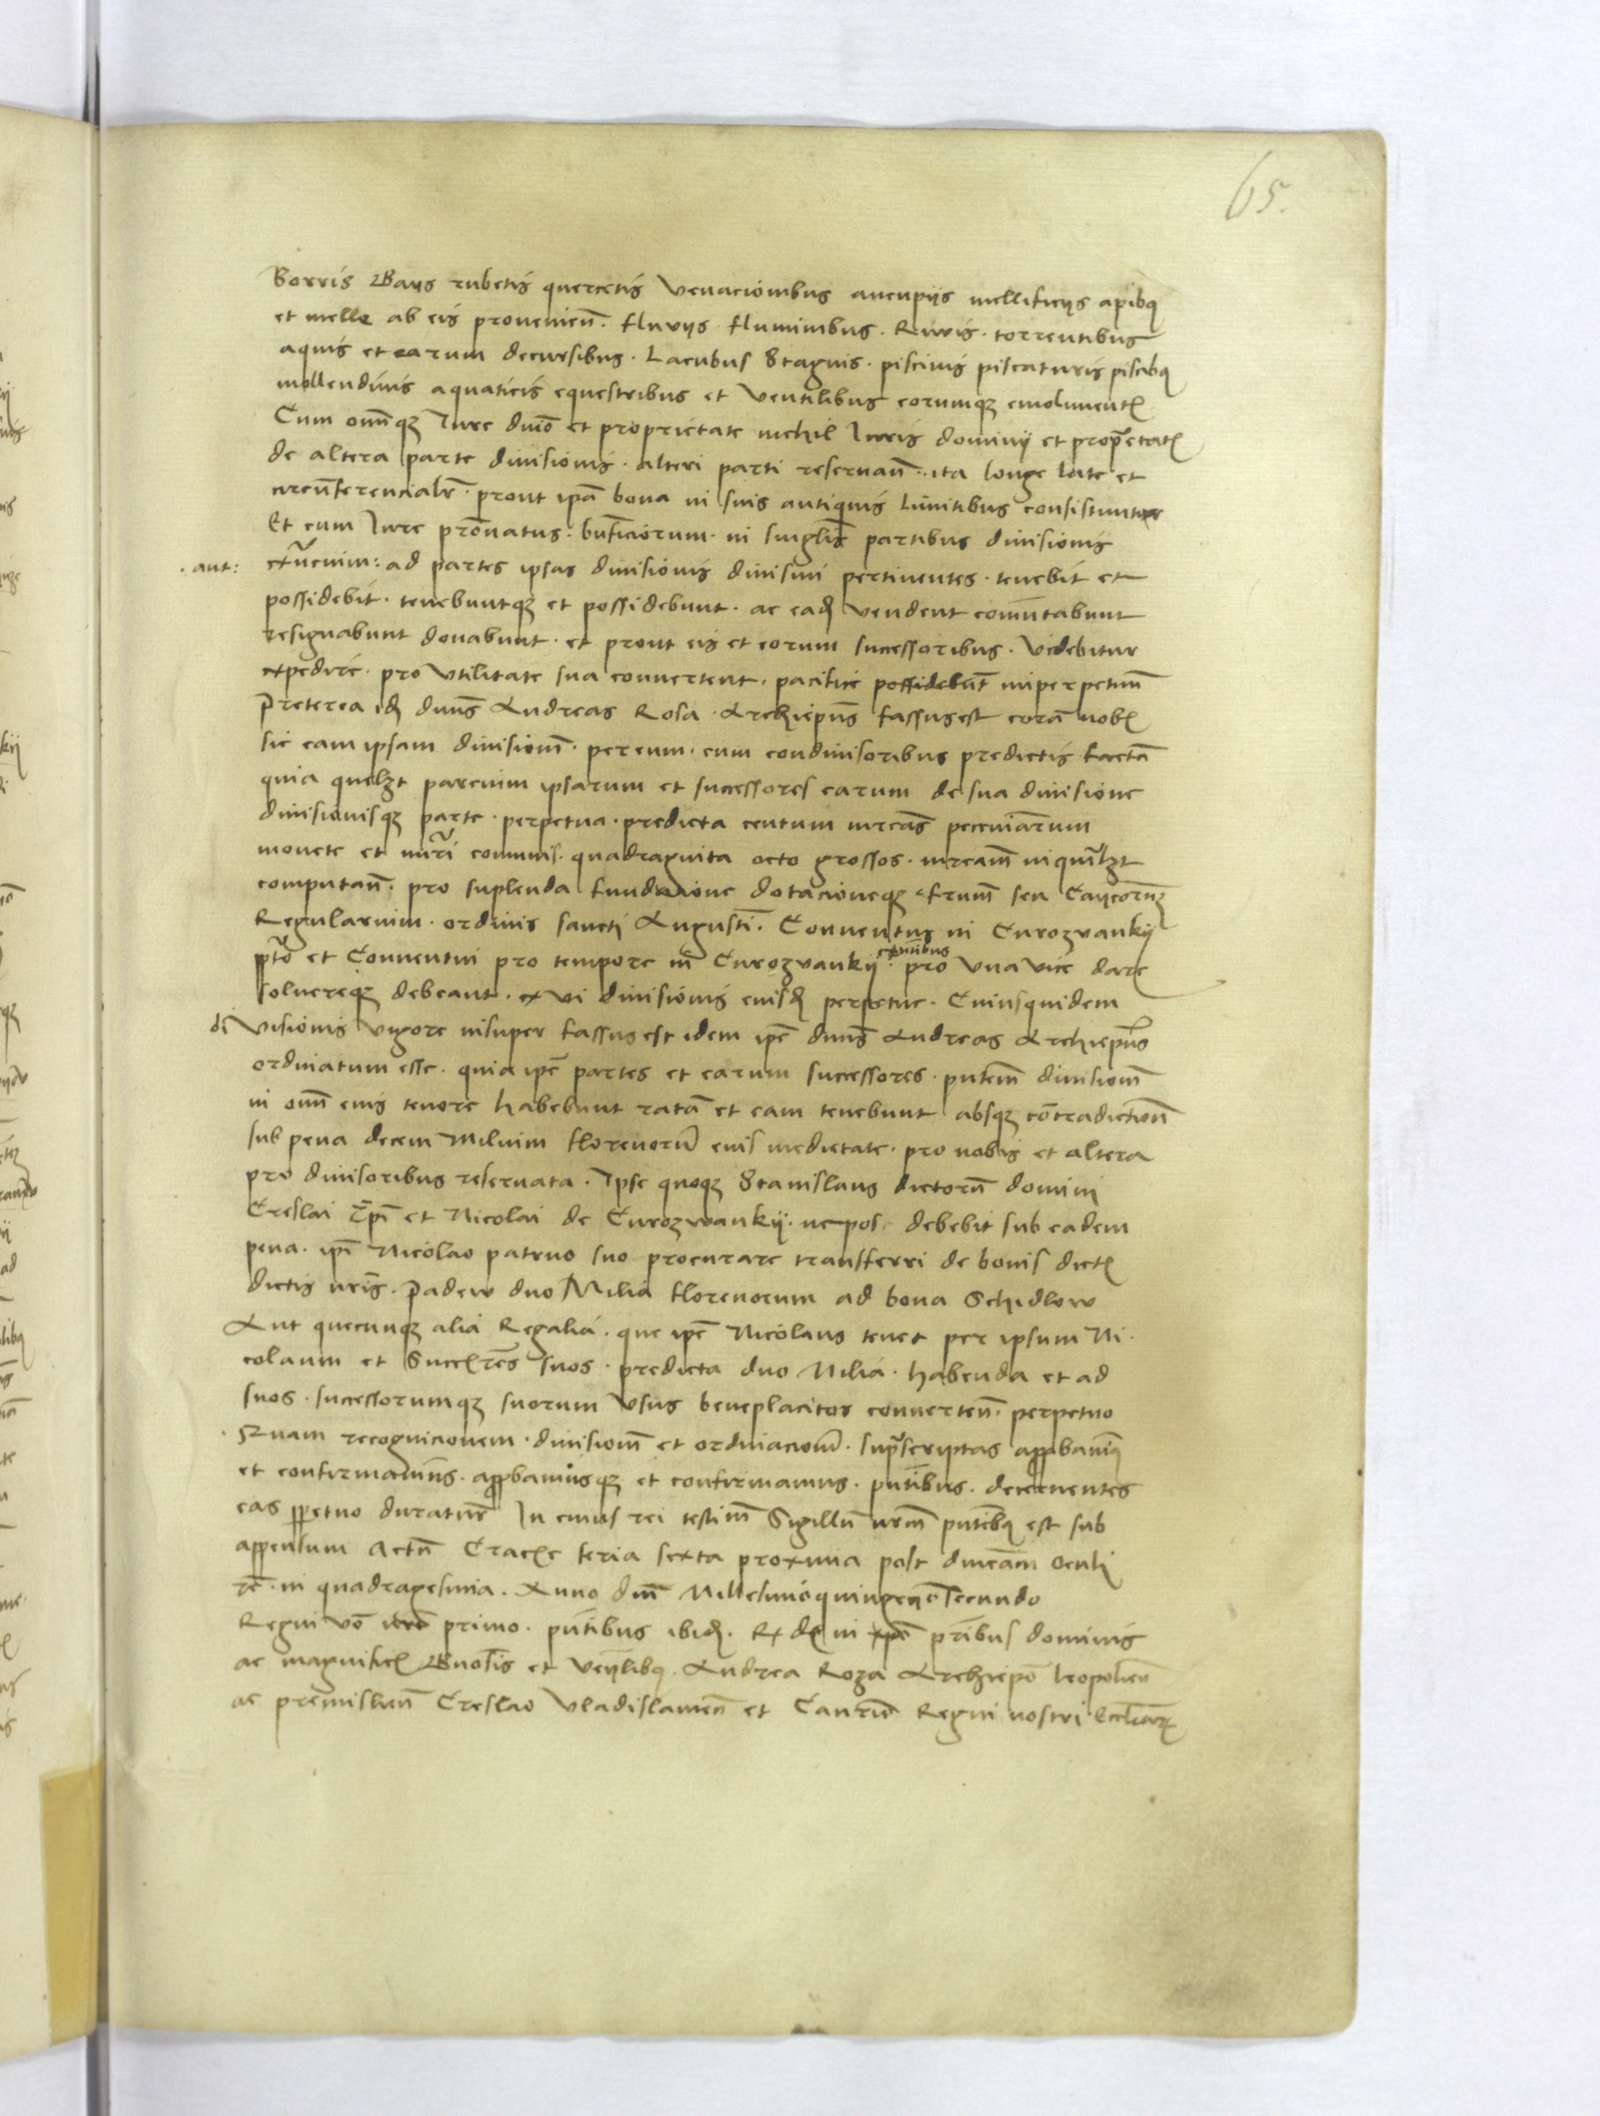 65.
Borris Gays rubetis quercetis venacionibus aucupijs mellificijs apibus
et melle ab eis provenien. fluvijs fluminibus. Rivis. torrentibus
aquis et earum decursibus. Lacubus Stagnis. piscinis piscaturis piscibus
mollendinis aquaticis equestribus et ventilibus eorumque emolument
Cum omnique Iure dnio et proprietate nichil Iuris dominij et proprietat
de altera parte divisionis. alteri parti reservan. ita longe late et
circumferencialr. prout ipa bona in suis antiquis Limitibus consistunt
Et cum Iure pronatus. bnficiorum. in singlis partibus divisionis
. aut: ad partes ipsas divisionis divisim pertinentes. tenebit et
possidebit. tenebuntque et possidebunt. ac ead vendent comutabunt
resignabunt donabunt. et prout eis et eorum successoribus. videbitur
expedire. pro utilitate sua convertent. pacifice possidebut inperpetuu
Preterea id dnus Andreas Rosa. Archiepus fassus est cora nob
sic eam ipsam division. per eum. cum condivisoribus predictis facta
quia quelzt parcium ipsarum et successores earum de sua divisione
divisionisque parte. perpetua. predicta centum mrcas pecuniarum
monete et nuri comunis. quadraginta octo grossos. mrcam in qualzt
computan. pro suplenda fundacione dotacioneque frum seu Canicorum
Regularium. ordinis sancti Augusti. Conventus in Curozvankij
pto et Conventui pro tempore in Curozvankij extntibus pro una vice dare
solvereque debeant. ex vi divisionis eiusd perpetue. Cuiusquidem
di visionis vigore insuper fassus est idem ipe dnus Andreas Archiepus
ordinatum esse. quia ipe partes et earum successores. pntem division
in omn eius tenore habebunt rata et eam tenebunt absque contradiction
sub pena decem Milium florenoru eius medietate. pro nobis et altera
pro divisoribus reservata. Ipse quoque Stanislaus dictoru domini
Creslai Epi et Nicolai de Curozwankij. nepos debebit sub eadem
pena. ipi Nicolao patruo suo procurare transferri de bonis dict
dictis nris. Padew duo Milia florenorum ad bona Schidlow
Aut quecunque alia Regalia. que ipe Nicolaus tenet per ipsum Ni.
colaum et Successres suos. predicta duo Milia. habenda et ad
suos. successorumque suorum usus beneplacitos converten. perpetuo
Quam recognicionem. division et ordinacion. suprascriptas approbamus
et confirmavimus. approbamusque et confirmamus. pntibus. decernentes
eas ppetuo duratur In cuius rei testim Sigillu nrm pntibus est sub
appensum Actu Cracie feria sexta proxima post dnicam Oculi
re. in quadragesima. Anno dni Millesimoquingen Secundo
Regni vo nro primo. pntibus ibid. in pribus dominis
ac magnific Gnosis et Andrea Roza Archiepo leopolien
ac premislien Creslao Vladislavien et Regni nostri